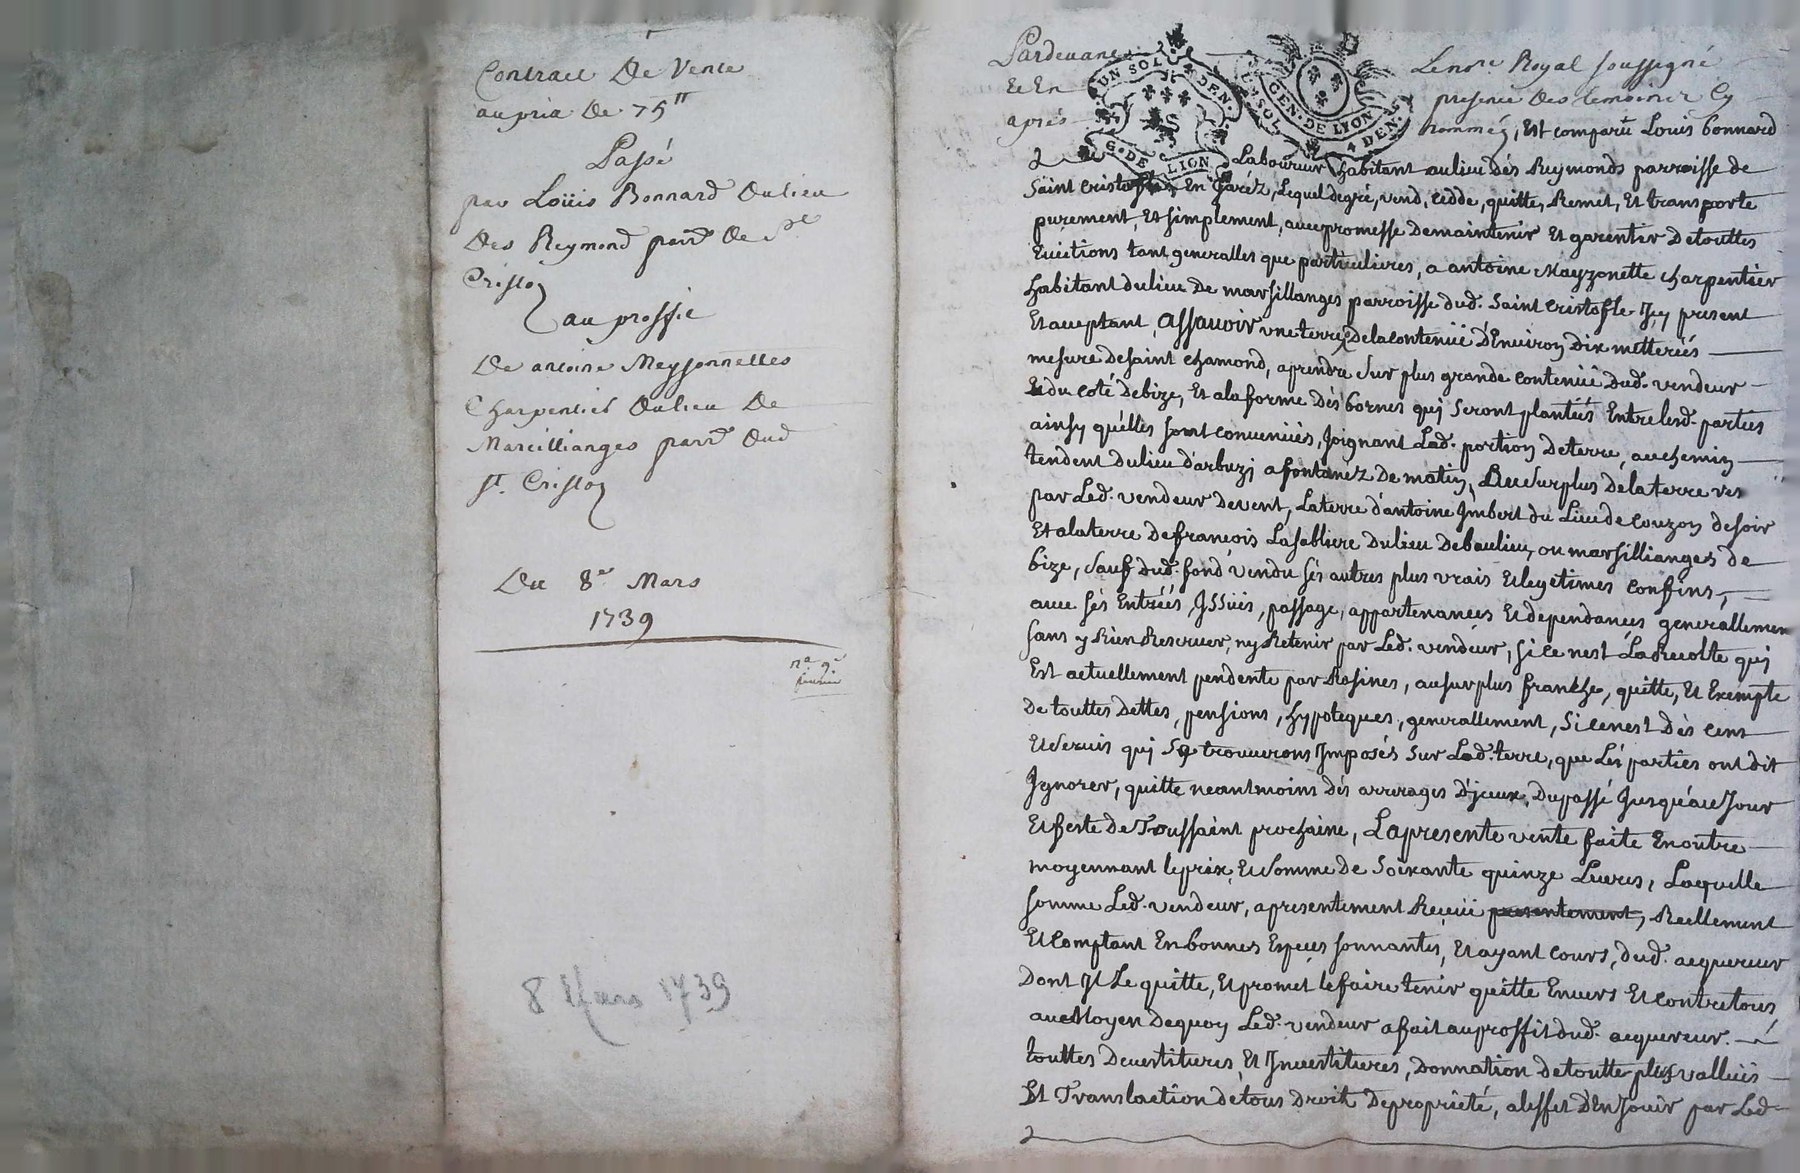 Contract De Vente
au prix de 75tt
Passé
par Loüis Bonnard du lieu
des Reymond parr. de St
Cristo
au proffit
De antoine Meyssonnettes
Charpentier du lieu De
Marcillianges parr. dud
St. Cristo
Du 8e Mars
1739
8 Mars 1739
Pardevant Le nore. Royal soussigné
Et En presence des temoins Cy
après nommés, Est comparu Louis bonnard
UN SOL 4 DEN.
G. DE LION
UN SOL 4 DEN.
GEN. DE LION
Laboureur habitant au lieu dés Reymonds parroisse de
Saint Cristofle En Jaréz, Lequel de gré, vend, cedde, quitte, Remet, Et transporte
purement, Et simplement, avec promesse de maintenir Et garentir de touttes
Evictions tant generalles que particulieres, a antoine Mayzonette charpentier
habitant du lieu De marsillanges parroisse dud. Saint Cristofle Icy present
Et acceptant, assavoir une terre de la contenüe d'Environ dix metterées
mesure de saint chamond, a prendre sur plus grande contenüe dud. vendeur
Et du coté de bize, Et a la forme dés bornes qui seront plantéés Entre lesd. parties
ainsy qu'elles sont convenuës, Joignant Lad. portion de terre, au chemin
tendent du lieu d'arbuzi a fontanez De matin, Le surplus de la terre
par Led. vendeur devent, La terre d'antoine Imbert du Lieu de Couzon de soir
Et a la terre de francois La sabliere du lieu De baulieu, ou marsillianges de
bize, sauf dud. fond vendu sés autres plus vrais Et legetimes confins,
avec sés Entréés, Issües, passage, appartenances Et dependances generallemen
sans y Rien Reserver, ny Retenir par Led. vendeur, si ce nest La Recolte qui
Est actuellement pendente par Rasines, au surplus franche, quitte, Et Exempte
De touttes dettes, pensions, hypoteques, generallement, si ce nest dès cens
Et servis qui se trouverons Imposés sur Lad. terre, que Lés parties ont dit
Ignorer, quitte neantmoins dés arrerages d'jceux, du passé Jusqu'au Jour
Et feste de Toussaint prochaine, La presente vente faite En outre
moyennant le prix, Et somme de soixante quinze Livres, Laquelle
somme Led. vendeur, a presentement Receüe presentement, Reellement
Et Comptant En bonnes Especes sonnantes, Et ayant cours, dud. acquereur
Dont Il Le quitte, Et promet le faire tenir quitte Envers Et contre tous,
au Moyen De quoy Led. vendeur a fait au proffit dud. acquereur.
touttes Devestitures, Et Investitures, Donnation de toutte plus vallüe
Et Translaction de tous droit De proprieté, a leffet d'En Jouir par Led